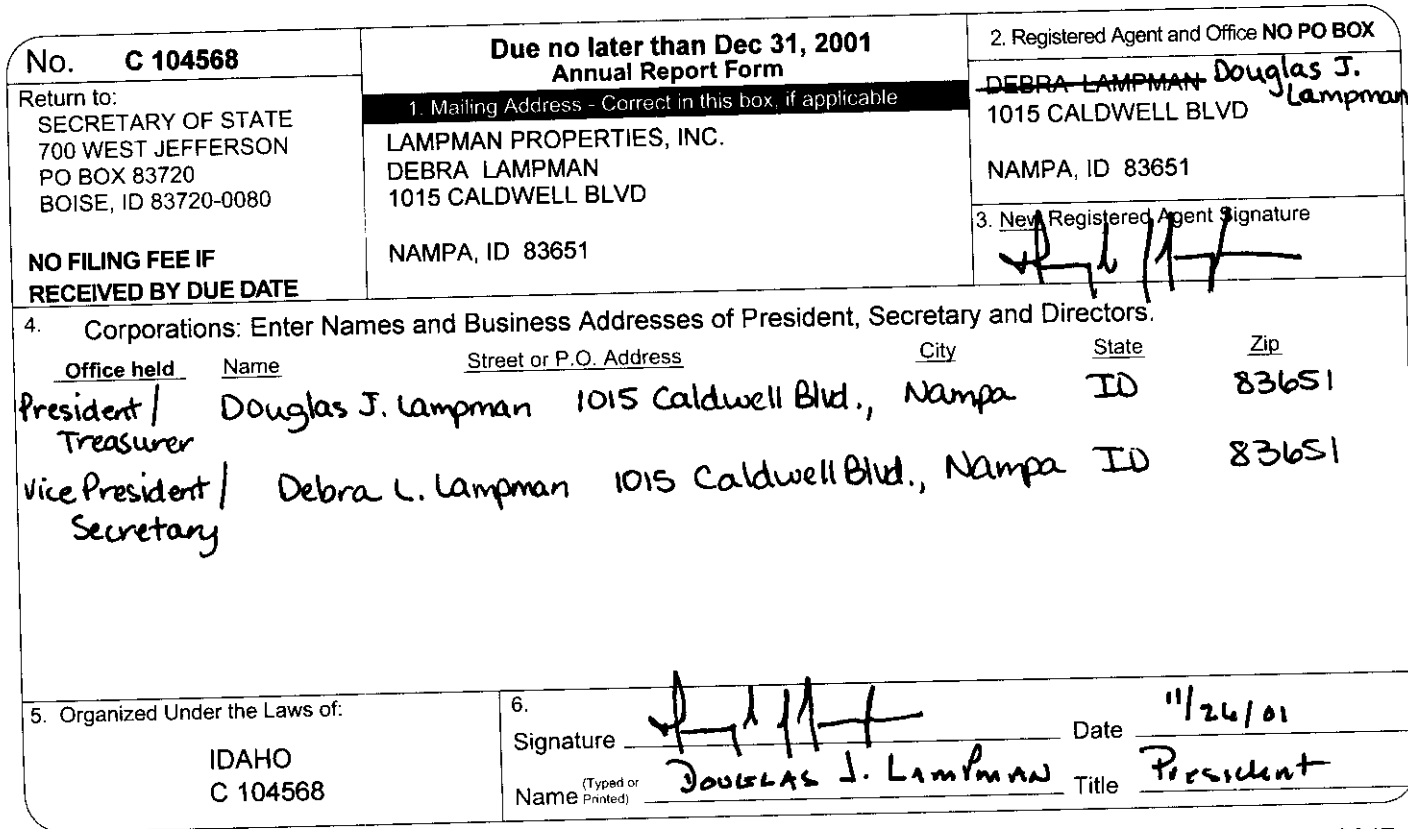 No. C 104568
Return to:
SECRETARY OF STATE
700 WEST JEFFERSON
PO BOX 83720
BOISE, ID 83720-0080
NO FILING FEE IF
RECEIVED BY DUE DATE
Due no later than Dec 31, 2001
Annual Report Form
1. Mailing Address - Correct in this box, if applicable
LAMPMAN PROPERTIES, INC.
DEBRA LAMPMAN
1015 CALDWELL BLVD
NAMPA, ID 83651
2. Registered Agent and Office NO PO BOX
DEBRA LAMPMAN Douglas J.
Lampman
1015 CALDWELL BLVD
NAMPA, ID 83651
3. New Registered Agent Signature
4. Corporations: Enter Names and Business Addresses of President, Secretary and Directors.
Office held Name Street or P.O. Address City State Zip
President/ Douglas J. Lampman 1015 Caldwell Blvd., Nampa ID 83651
Treasurer
Vice President/ Debra L. Lampman 1015 Caldwell Blvd., Nampa ID 83651
Secretary
5. Organized Under the Laws of:
IDAHO
C 104568
6.
Signature Date 11/26/01
Name (Typed or Printed) DOUGLAS J. LAMPMAN Title President